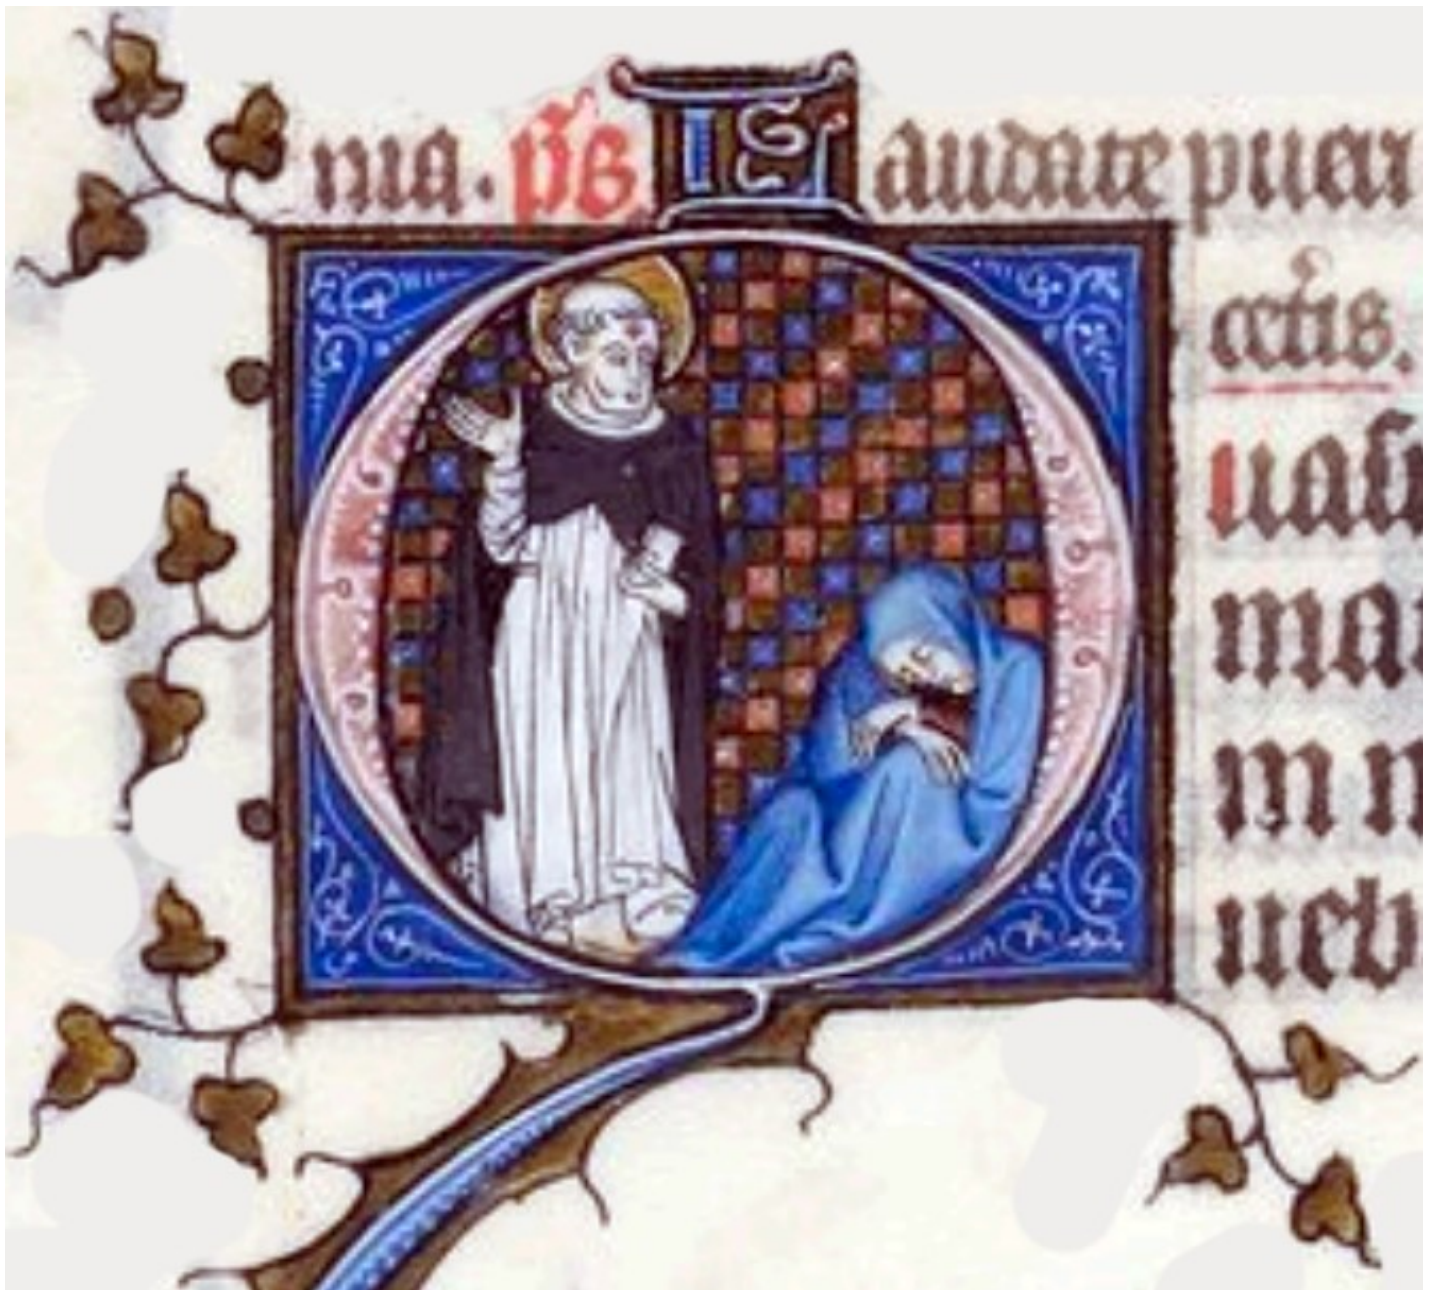 nia. ps Laudate pueri
cetis.
uas
ma
m n
ueb